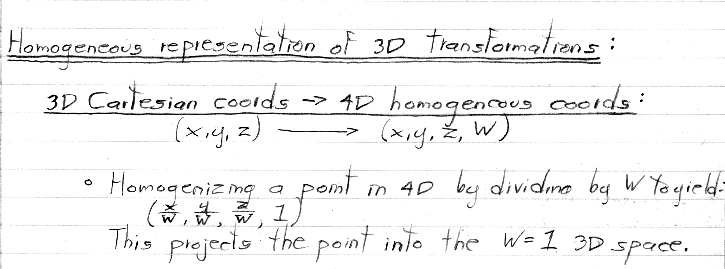 Homogeneous representation of 3D transformations:
3D Cartesian coords → 4D homogeneous coords:
(x,y,z) → (x,y,z,W)
• Homogenizing a point in 4D by dividing by W to yield:
(x/W, y/W, z/W, 1)
This projects the point into the W=1 3D space.